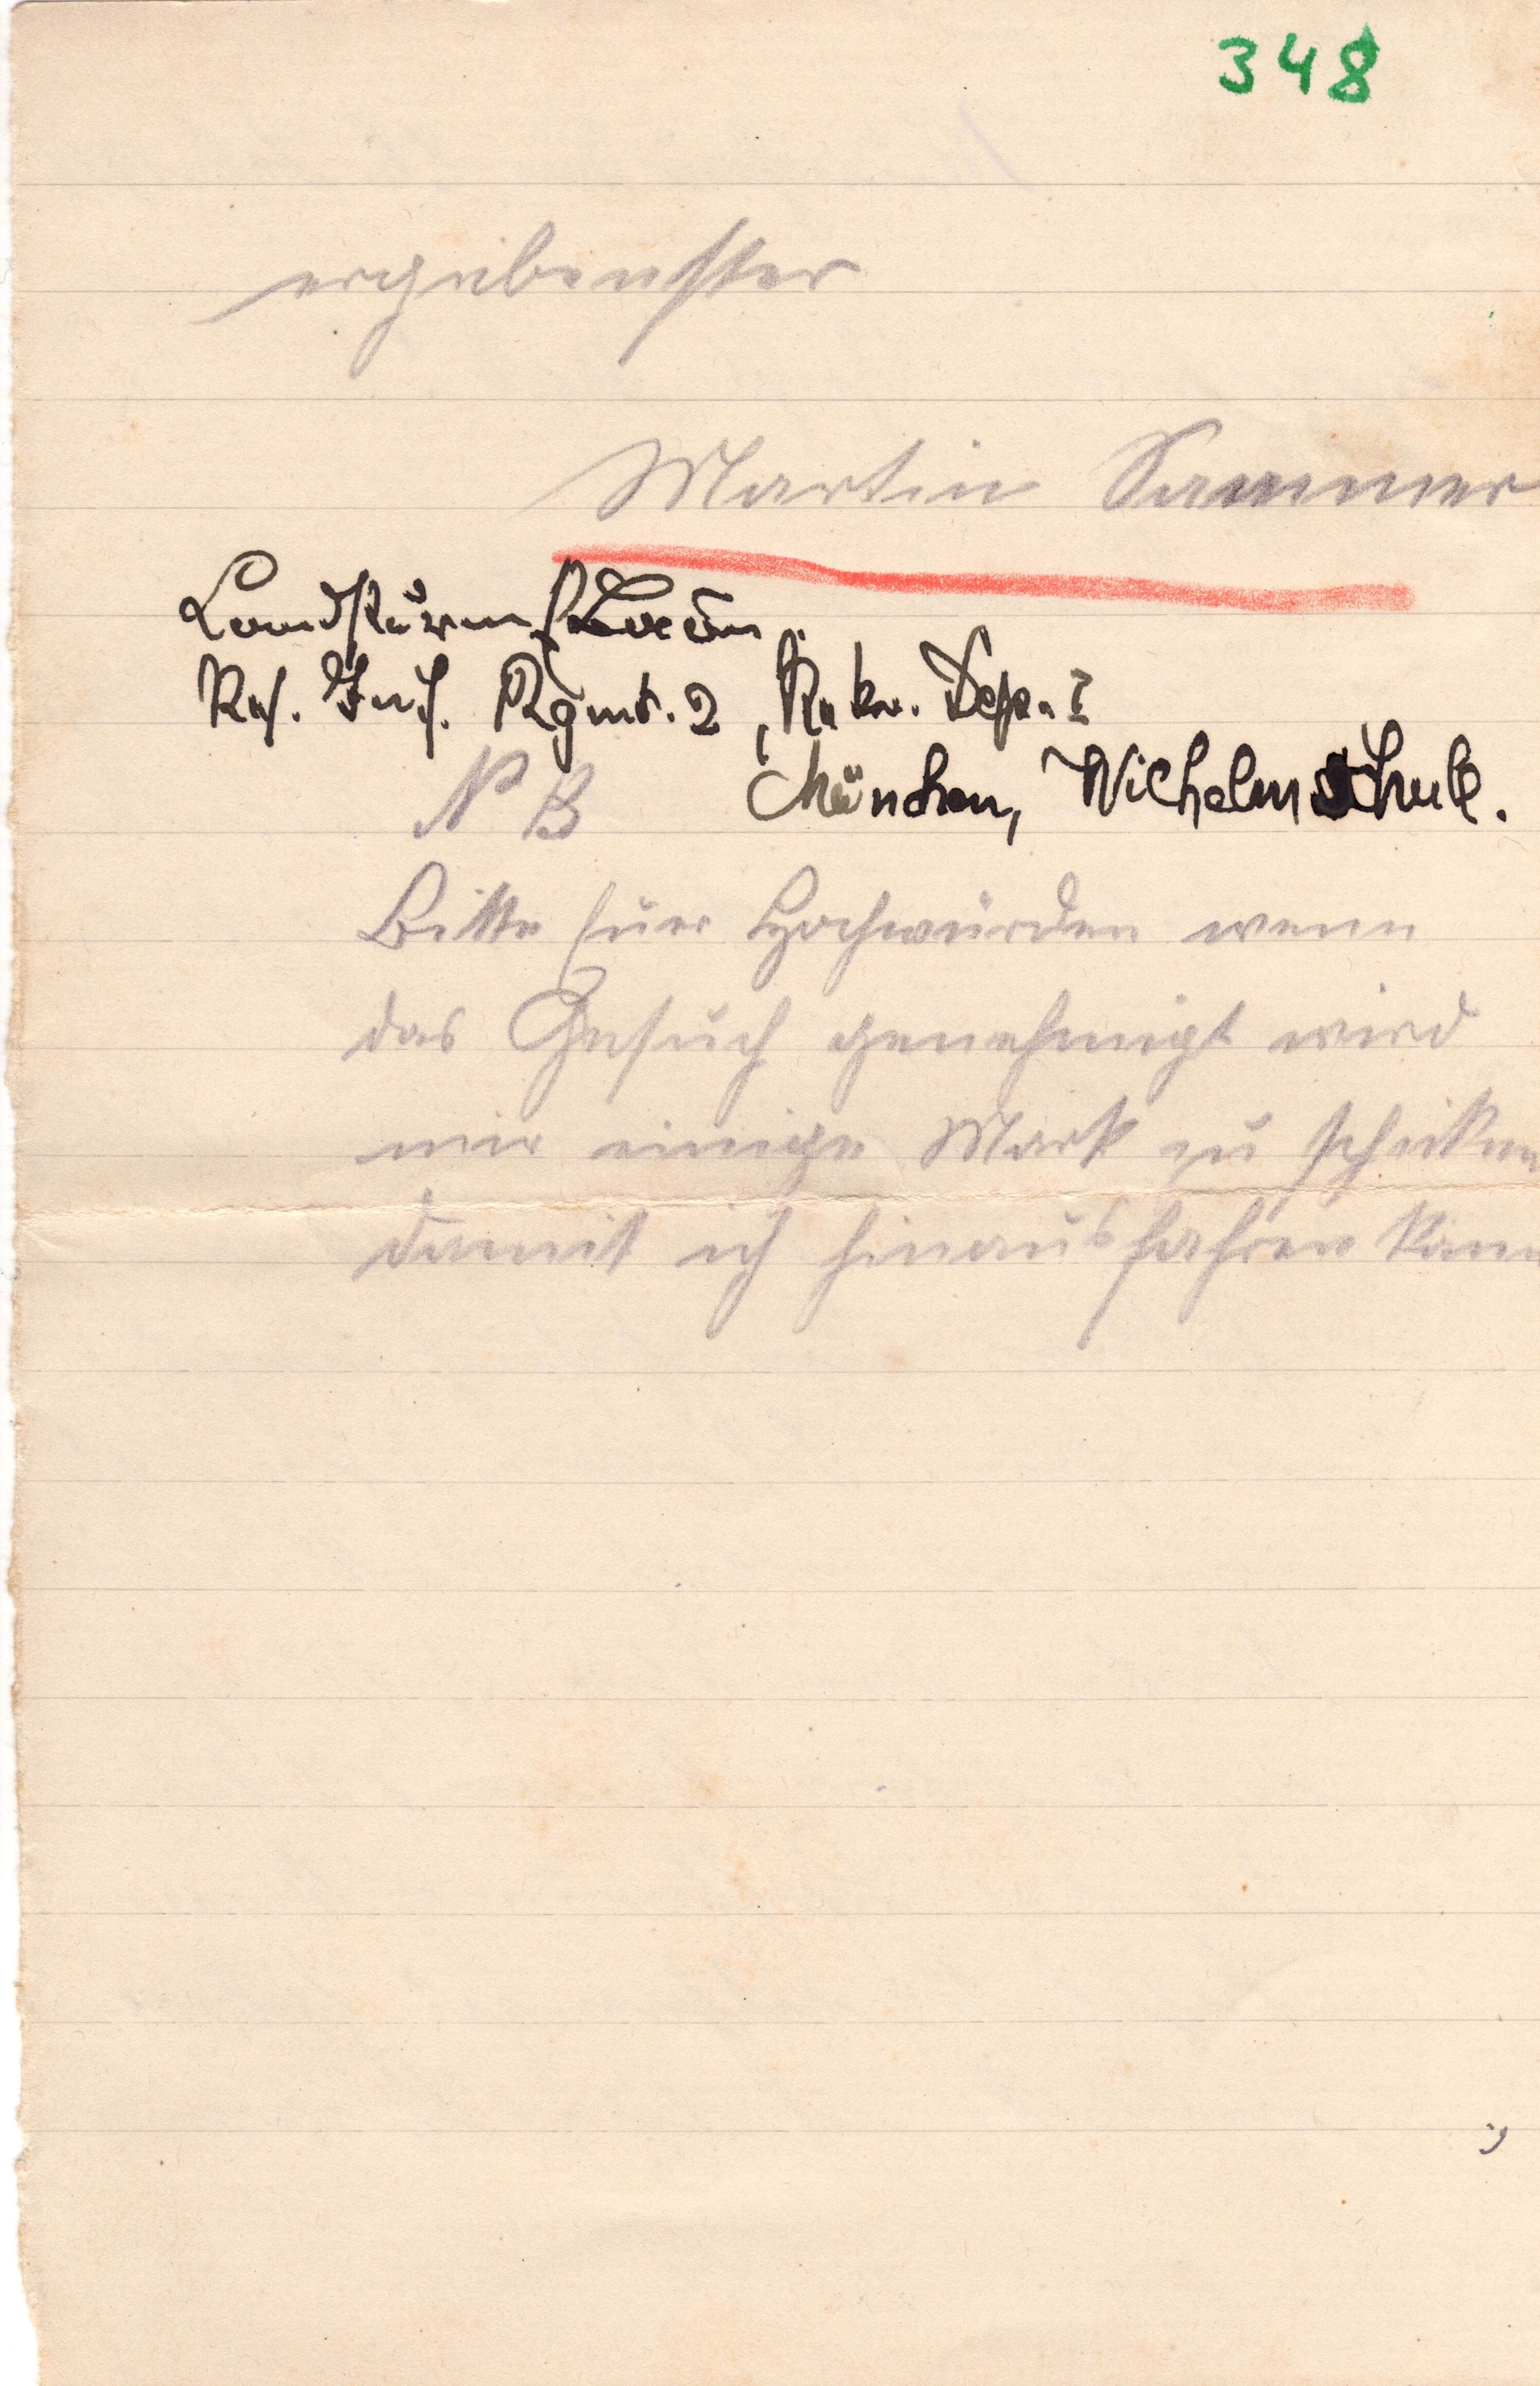 348
ergebenster
Martin Sammer
Landsturm
Res. Inf. Rgmt. 2, Rekr. Dep. I
München, Wilhelmschule.
NB
Bitte Euer Hochwürden wenn
das Gesuch genehmigt wird
mir einige Mark zu schiken
damit ich hinausfahren kann